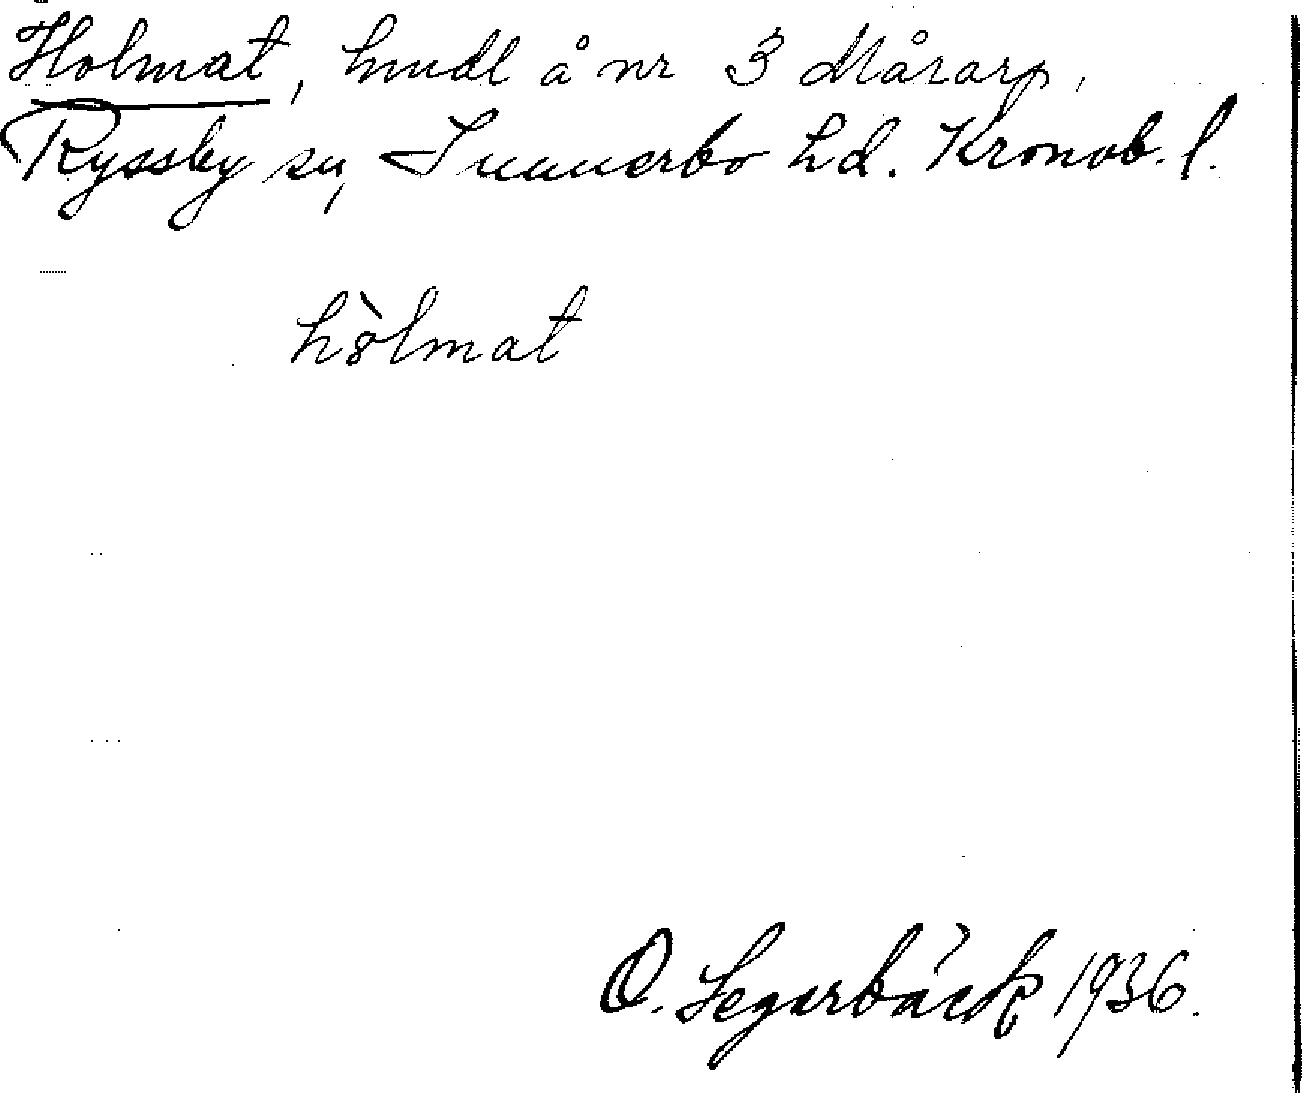 Holmat, hmdl å nr 3 Mårarp,
Ryssby sn, Sunnerbo hd. Kronob. l.
hòlmat
O. Segerbäck 1936.